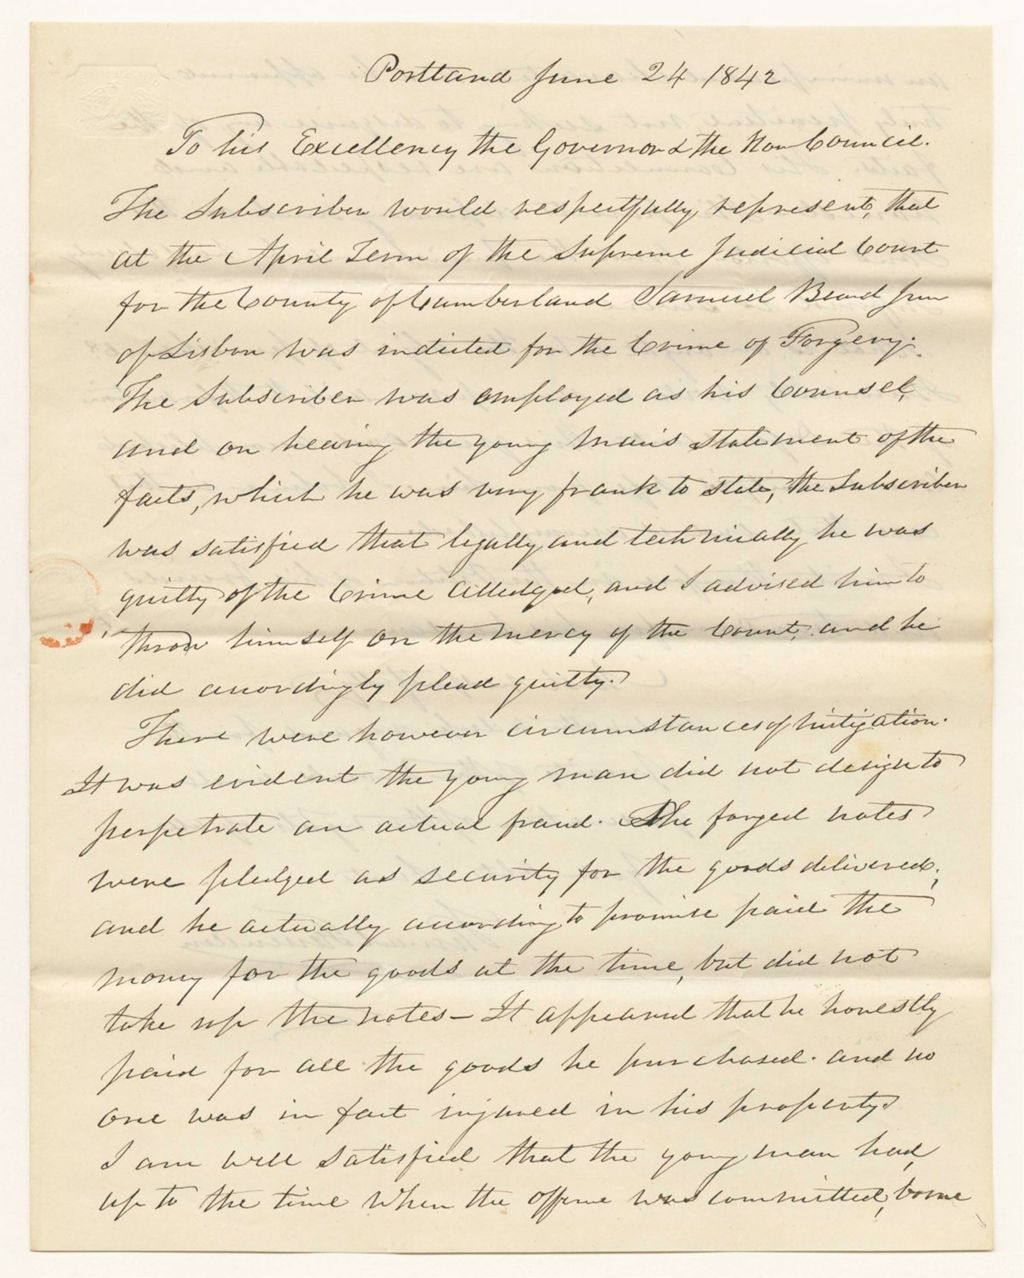 Portland June 24 1842
To his Excellency the Governor & the Hon Council.
The Subscriber would respectfully represent, that
at the April Term of the Supreme Judicial Court
for the County of Cumberland Samuel Beard Jun
of Lisbon was indicted for the Crime of Forgery.
The Subscriber was employed as his Counsel,
and on hearing the young man's statement of the
facts, which he was very frank to state, the Subscriber
was satisfied that legally and technically he was
guilty of the Crime Alledged, and I advised him to
throw himself on the mercy of the Court, and he
did accordingly plead guilty.
There were however circumstances of mitigation.
It was evident the young man did not design to
perpetrate an actual fraud. The forged notes
were pledged as security for the goods delivered,
and he actually according to promise paid the
money for the goods at the time, but did not
take up the notes – It appeared that he honestly
paid for all the goods he purchased. and no
one was in fact injured in his property.
I am well satisfied that the young man had,
up to the time when the offense was committed, borne